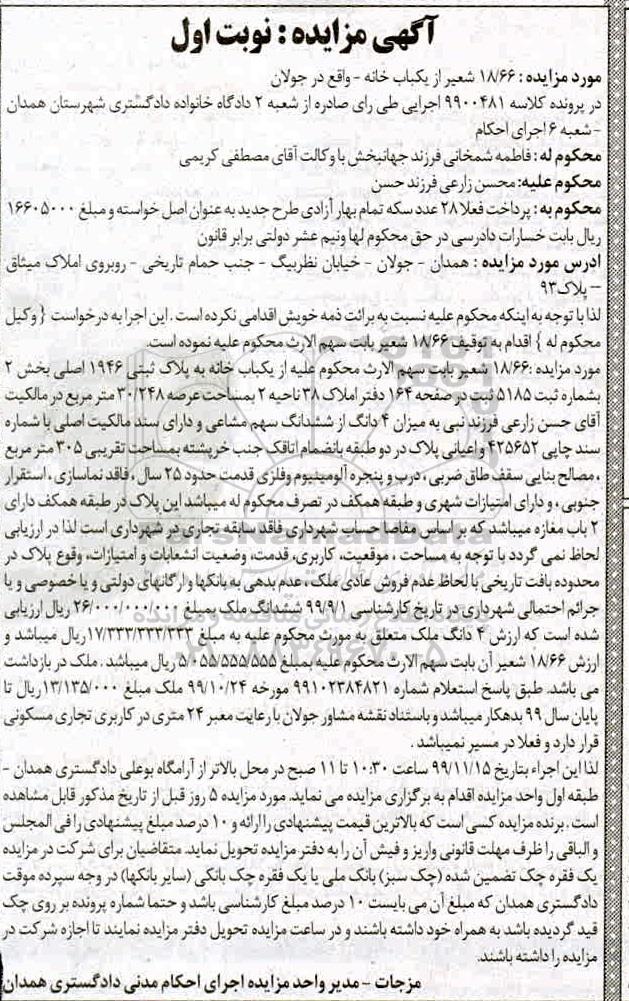 آگهی مزایده : نوبت اول
مورد مزایده : ۱۸/۶۶ شعیر از یکباب خانه - واقع در جولان
در پرونده کلاسه ۹۹۰۰۴۸۱ اجرایی طی رای صادره از شعبه ۲ دادگاه خانواده دادگستری شهرستان همدان
- شعبه ۶ اجرای احکام
محکوم له : فاطمه شمخانی فرزند جهانبخش با وکالت آقای مصطفی کریمی
محکوم علیه: محسن زارعی فرزند حسن
محکوم به : پرداخت فعلا ۲۸ عدد سکه تمام بهار آزادی طرح جدید به عنوان اصل خواسته و مبلغ ۱۶۶۰۵۰۰۰
ریال بابت خسارات دادرسی در حق محکوم لها ونیم عشر دولتی برابر قانون
ادرس مورد مزایده : همدان - جولان - خیابان نظربیگ - جنب حمام تاریخی - روبروی املاک میثاق
– پلاک ۹۳
لذا با توجه به اینکه محکوم علیه نسبت به برائت ذمه خویش اقدامی نکرده است . این اجرا به درخواست { وکیل
محکوم له } اقدام به توقیف ۱۸/۶۶ شعیر بابت سهم الارث محکوم علیه نموده است.
مورد مزایده :۱۸/۶۶ شعیر بابت سهم الارث محکوم علیه از یکباب خانه به پلاک ثبتی ۱۹۴۶ اصلی بخش ۲
بشماره ثبت ۵۱۸۵ ثبت در صفحه ۱۶۴ دفتر املاک ۳۸ ناحیه ۲ بمساحت عرصه ۳۰/۲۴۸ متر مربع در مالکیت
آقای حسن زارعی فرزند نبی به میزان ۴ دانگ از ششدانگ سهم مشاعی و دارای سند مالکیت اصلی با شماره
سند چاپی ۴۲۵۶۵۲ و اعیانی پلاک در دو طبقه بانضمام اتاقک جنب خرپشته بمساحت تقریبی ۳۰۵ متر مربع
، مصالح بنایی سقف طاق ضربی ، درب و پنجره آلومینیوم وفلزی قدمت حدود ۲۵ سال ، فاقد نماسازی ، استقرار
جنوبی ، و دارای امتیازات شهری و طبقه همکف در تصرف محکوم له میباشد این پلاک در طبقه همکف دارای
۲ باب مغازه میباشد که بر اساس مفاصا حساب شهرداری فاقد سابقه تجاری در شهرداری است لذا در ارزیابی
لحاظ نمی گردد با توجه به مساحت ، موقعیت، کاربری، قدمت، وضعیت انشعابات و امتیازات، وقوع پلاک در
محدوده بافت تاریخی با لحاظ عدم فروش عادی ملک ، عدم بدهی به بانکها و ارگانهای دولتی و یا خصوصی و یا
جرائم احتمالی شهرداری در تاریخ کارشناسی ۹۹/۹/۱ ششدانگ ملک بمبلغ ۲۶/۰۰۰/۰۰۰/۰۰۰ ریال ارزیابی
شده است که ارزش ۴ دانگ ملک متعلق به مورث محکوم علیه به مبلغ ۱۷/۳۳۳/۳۳۳/۳۳۳ریال میباشد و
ارزش ۱۸/۶۶ شعیر آن بابت سهم الارث محکوم علیه بمبلغ ۵/۰۵۵/۵۵۵/۵۵۵ ریال میباشد . ملک در بازداشت
می باشد. طبق پاسخ استعلام شماره ۹۹۱۰۲۳۸۴۸۲۱ مورخه ۹۹/۱۰/۲۴ ملک مبلغ ۱۳/۱۳۵/۰۰۰ریال تا
پایان سال ۹۹ بدهکار میباشد و باستناد نقشه مشاور جولان با رعایت معبر ۲۴ متری در کاربری تجاری مسکونی
قرار دارد و فعلا در مسیر نمیباشد .
لذا این اجراء بتاریخ ۹۹/۱۱/۱۵ ساعت ۱۰:۳۰ تا ۱۱ صبح در محل بالاتر از آرامگاه بوعلی دادگستری همدان -
طبقه اول واحد مزایده اقدام به برگزاری مزایده می نماید. مورد مزایده ۵ روز قبل از تاریخ مذکور قابل مشاهده
است . برنده مزایده کسی است که بالاترین قیمت پیشنهادی را ارائه و ۱۰ درصد مبلغ پیشنهادی را فی المجلس
و الباقی را ظرف مهلت قانونی واریز و فیش آن را به دفتر مزایده تحویل نماید. متقاضیان برای شرکت در مزایده
یک فقره چک تضمین شده (چک سبز) بانک ملی یا یک فقره چک بانکی (سایر بانکها) در وجه سپرده موقت
دادگستری همدان که مبلغ آن می بایست ۱۰ درصد مبلغ کارشناسی باشد و حتما شماره پرونده بر روی چک
قید گردیده باشد به همراه خود داشته باشند و در ساعت مزایده تحویل دفتر مزایده نمایند تا اجازه شرکت در
مزایده را داشته باشند.
مزجات - مدیر واحد مزایده اجرای احکام مدنی دادگستری همدان
ParsNamadData